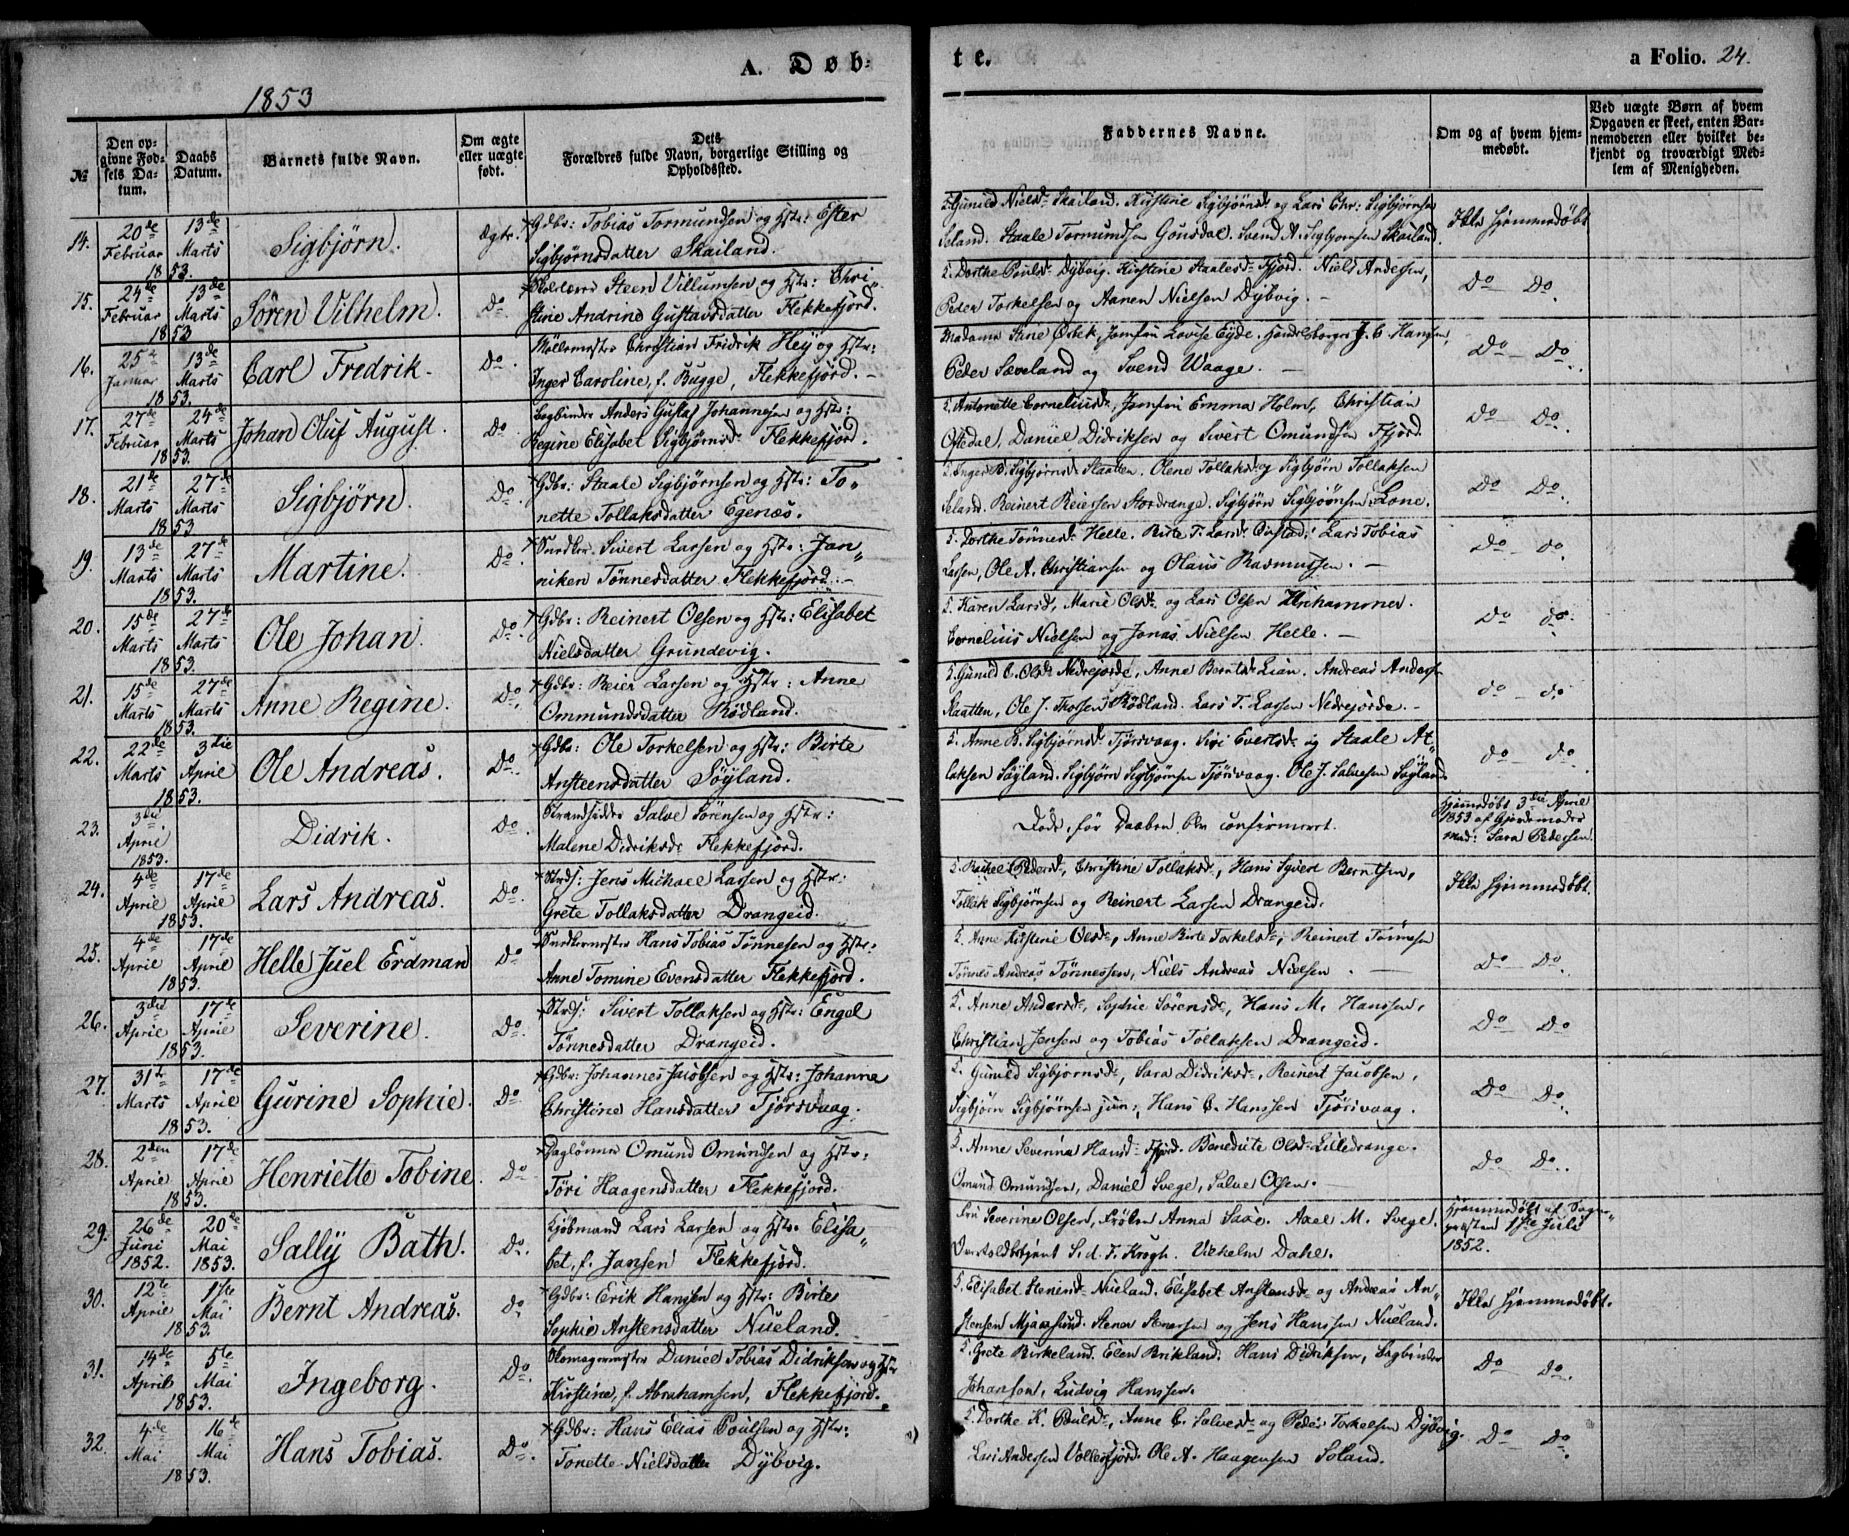 A. Døb-
te.
a Folio. 24.
1853
№
Den op-
givne Fød-
sels Da-
tum.
Daabs
Datum.
Barnets fulde Navn.
Om ægte
eller uægte
født.
Dets
Forældres fulde Navn, borgerlige Stilling og
Opholdssted.
Faddernes Navne.
Om og af hvem hjem-
medøbt.
Ved uægte Børn af hvem
Opgaven er skeet, enten Bar-
nemoderen eller hvilket be-
kjendt og troværdigt Med-
lem af Menigheden.
14. 20de Februar 13de Marts 1853. Sigbjörn. Ægte.
Gdbr: Tobias Tormundsen og Hstr: Ester
Sigbjørnsdatter Skailand.
Gunild Nielsd. Skailand. Kirstine Sigbjørnsd. og Lars Chr: Sigbjørnsen
Seland. Staale Tormundsen Gousdal. Svend A. Sigbjørnsen Skailand.
Ikke Hjemmedøbt.
15. 24de Februar 13de Marts 1853 Sören Vilhelm. Do.
Steen Villumsen og Hstr: Chri-
stine Andrine Gustavsdatter Flekkefjord.
Dorthe Pouls. Dybvig. Kirstine Staalesd. Fjord. Niels Andersen,
Peder Torkelsen og Aanen Nielsen Dybvig.
Do Do
16. 25de Januar 13de Marts 1853. Carl Fredrik. Do.
Møllermester Christian Fridrik Heÿ og Hstr:
Inger Caroline, f. Bugge, Flekkefjord.
Madame Stine Beck, Jomfru Lovise Eyde. Handelsborger J. C. Hansen,
Peder Sæveland og Svend Waage.
Do Do.
17. 27de Februar 24de Marts 1853. Johan Oluf August. Do
Bogbinder Anders Gustaf Johannesen og Hstr:
Regine Elisabet Sigbjørnsd. Flekkefjord.
Antonette Corneliusd., Jomfru Emma Holm, Christian
Ofstedal, Daniel Didriksen og Sivert Omundsen Fjord.
Do Do.
18. 21de Marts 27de Marts 1853 Sigbjörn. Do.
Gdbr: Staale Sigbjørnsen og Hstr: To-
nette Tollaksdatter Egenæs.
Inger B. Sigbjørnsd. Staatten. Olene Tollaksd. og Sigbjørn Tollaksen
Seland. Reinert Reiersen Stordrange. Sigbjørn Sigbjørnsen Lone.
Do Do.
19. 13de Marts 27de Marts 1853. Martine. Do.
Snedker Sivert Larsen og Hstr: Jan-
niken Tønnesdatter Flekkefjord.
Dorthe Tønnesd. Helle. Birte T. Larsd. Lars Tobias
Larsen, Ole A. Christiansen og Olaus Rasmussen.
Do do.
20. 15de Marts 27de Marts 1853. Ole Johan. Do.
Gdbr: Reinert Olsen og Hstr: Elisabet
Nielsdatter Grundevig.
Karen Larsd., Marie Olsd. og Lars Olsen Urhammer.
Cornelius Nielsen og Jonas Nielsen Helle.
Do do.
21. 15de Marts 27de Marts 1853. Anne Regine. Do.
Gdbr: Reier Larsen og Hstr: Anne
Ommundsdatter Rödland.
Gunild C. Olsd. Nedrejorde, Anne Berntsd. Lian. Andreas Andersen
Staatten, Ole J. Rödland. Lars T. Larsen Nedrejorde.
do do
22. 22de Marts 3die April 1853. Ole Andreas. Do.
Gdbr: Ole Torkelsen og Hstr: Birte
Ansteensdatter Söyland.
Anne B. Sigbjørnsd. Tjørsvaag. Siri Evertsd. og Staale At-
laksen Søyland. Sigbjørn Sigbjørnsen Tjørsvaag. Ole J. Salvesen Søyland.
do do.
23. 3die April 1853. Didrik. Do.
Strandsidder Salve Sörensen og Hstr:
Malene Didriksd. Flekkefjord.
Døde før Daaben blev confirmeret.
Hjemmedøbt 3die April
1853 af Gjordemoder
Mad: Sara Pedersen.
24. 4de April 17de April 1853. Lars Andreas. Do.
Strds: Jens Michael Larsen og Hstr:
Grete Tollaksdatter Drangeid.
Rachel Pedersd., Christine Tollaksd., Hans Syvert Berntsen,
Tollak Sigbjørnsen og Reinert Larsen Drangeid.
Ikke Hjemmedøbt.
25. 4de April 17de April 1853. Helle Juel Erdman Do
Snedkermester Hans Tobias Tønnesen og Hstr:
Anne Tomine Evensdatter Flekkefjord.
Anne Kirstine Olsd., Anne Birte Torkelsd., Reinert Tønnesen
Tønnes Andreas Tønnessen, Niels Andreas Nielsen.
Do Do.
26. 3die April 17de April 1853. Severine. Do.
Strds: Sivert Tollaksen og Hstr: Engel
Tønnesdatter Drangeid.
Anne Andersd., Sophie Sørensd., Hans M. Hanssen,
Christian Jensen og Tobias Tollaksen Drangeid.
Do Do.
27. 31te Marts 17de April 1853. Gurine Sophie. Do.
Gdbr: Johannes Jacobsen og Hstr: Johanne
Christine Hansdatter Tjørsvaag.
Gunild Sigbjørnsd., Sara Didriksd., Reinert Jacobsen,
Sigbjørn Sigbjørnsen jun:, Hans C. Hanssen Tjørsvaag.
Do Do.
28. 2den April 17de April 1853. Henriette Tobine. Do.
Daglønner Omund Omundsen og Hstr:
Töri Haagensdatter Flekkefjord.
Anne Severine Hansd. Fjord. Benedicte Olsd. Lilledrange.
Omund Omundsen, Daniel Svege, Salve Olsen.
Do Do.
29. 26de Juni 1852. 20de Mai 1853. Sally Bath. Do.
Kjöbmand Lars Larsen og Hstr. Elisa-
bet, f. Jansen Flekkefjord.
Fru Severine Olsen, Frøken Anna Saxe. Axel M. Svege.
Overtoldbetjent S. d. F. Krogh. Vilhelm Dahl.
Hjemmedøbt af Sogne-
præsten 1ste Juli
1852.
30. 12te April 1ste Mai 1853. Bernt Andreas. do
Gdbr: Erik Hansen og Hstr: Birte
Sophie Anstensdatter Nueland.
Elisabet Stenersd. Nueland. Elisabet Anstensd. og Andreas An-
stensen Mjaasund. Stener Stenersen og Jens Hanssen Nueland.
Ikke Hjemmedøbt.
31. 14de April 5te Mai 1853. Ingeborg. Do.
Skomagermester Daniel Tobias Didriksen og Hstr
Kirstine, f. Abrahamsen, Flekkefjord.
Grete Birkeland. Elen Brikland. Hans Didriksen, Bogbinder
Johanson, Ludvig Hanssen.
Do Do.
32. 4de Mai 16de Mai 1853. Hans Tobias. Do.
Gdbr: Hans Elias Poulsen og Hstr:
Tonette Nielsdatter Dybvig.
Dorthe K. Poulsd., Anne C. Salvesd. og Peder Torkelsen Dybvig.
Lars Andersen Vollesfjord. Ole A. Haagensen Soland.
Do Do.